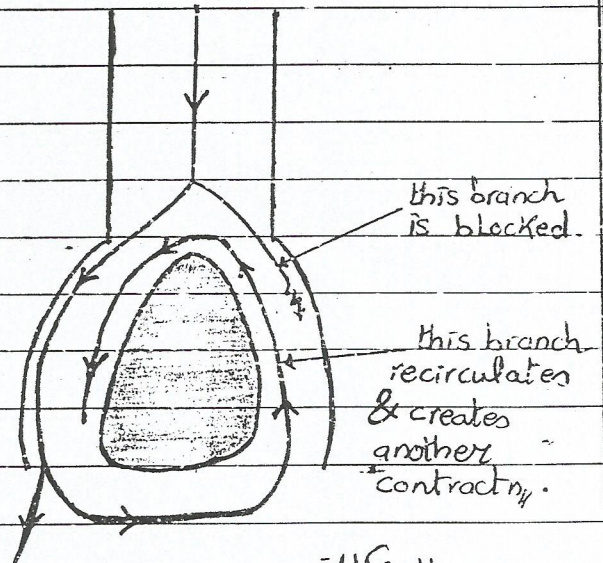 this branch
is blocked.
this branch
recirculates
& creates
another
contractn.